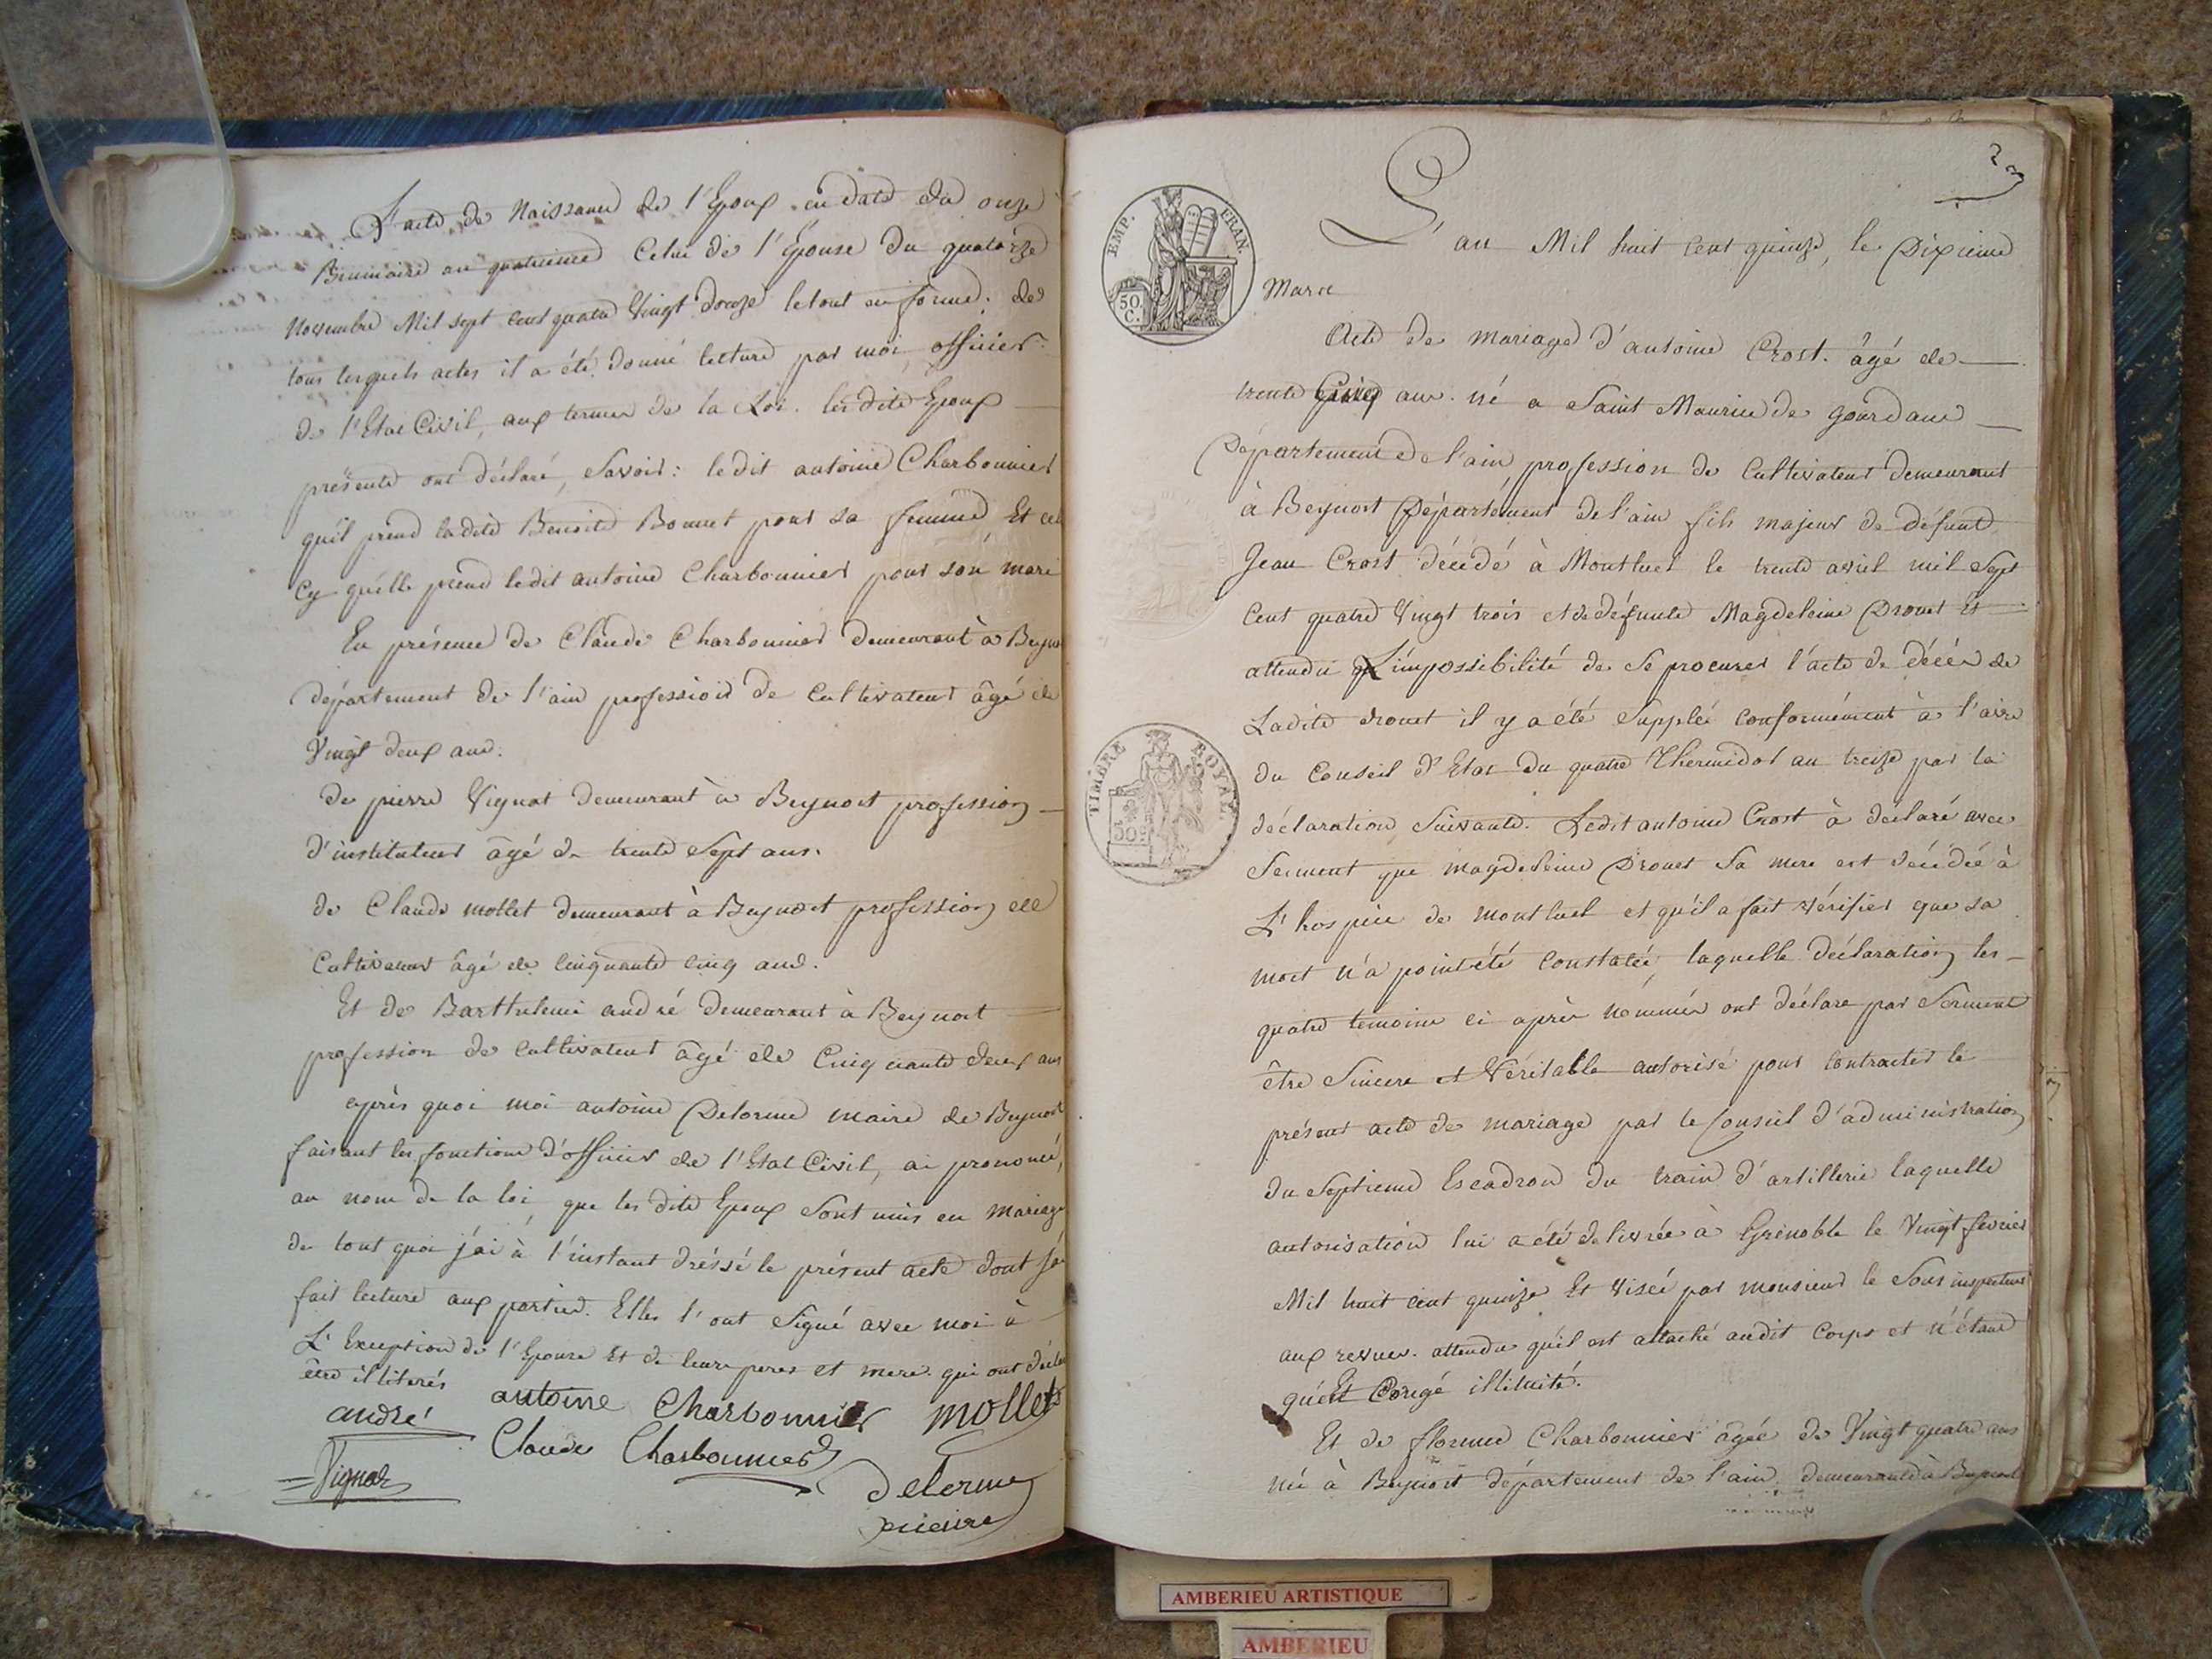 L'acte de Naissance de l'Epoux en date du onze
Brumaire an quatrieme Celui de l'Epouse du quatorze
Novembre Mil sept cent quatre Vingt douze le tout en forme. de
tous lesquels actes il a été donné lecture par moi officier
de l'Etat Civil, aux termes de la Loi. les dits Epoux
présents ont déclaré, Savoir: ledit antoine Charbonnier
qu'il prend ladite Benoite Bonnet pour sa femme Et cel
Cy qu'elle prend ledit antoine Charbonnier pour son mari
En présence de Claude Charbonnier demeurant à Beyno
département de l'ain profession de Cultivateur âgé de
Vingt deux ans.
de pierre Vignat demeurant à Beynost profession
d'instituteur âgé de trente Sept ans.
de Claude mollet demeurant à Beynost profession de
Cultivateur âgé de Cinquante Cinq ans.
Et de Barthelemi andré demeurant à Beynost
profession de cultivateur âgé de Cinquante deux ans
après quoi moi antoine Delorme maire de Beynost
faisant les fonctions d'officier de l'Etat Civil, ai prononcé,
au nom de la loi, que les dits Epoux Sont unis en mariage
de tout quoi j'ai à l'instant dréssé le présent acte dont j'ai
fait lecture aux parties. Elles l'ont Signé avec moi à
L'Exception de l'Epouse Et de leurs peres et mere qui ont déclar
être illiterés
antoine Charbonnier mollet
andré
Claude Charbonnier
Vignat
Delorme
maire
23
EMP. FRAN.
50 C.
L'an Mil huit Cent quinze, le Dixieme
Mars
Acte de mariage d'antoine Crost. âgé de
trente Cinq ans. né a Saint Maurice de gourdans
Département de l'ain profession de Cultivateur demeurant
à Beynost Département de l'ain fils majeur de défunt
Jean Crost décédé à Montluel le trente avril mil Sept
Cent quatre Vingt trois et de défunte Magdeleine Drouet Et
attendu L'impossibilité de Se procurer l'acte de décès de
Ladite drouet il y a été Supplée conformément à l'avis
du Conseil d'Etat du quatre Thermidor an treize par la
déclaration Suivante. Ledit antoine Crost à déclaré avec
Serment que magdeleine Drouet Sa mere est décédée à
L'hospice de montluel et qu'il a fait vérifier que sa
mort n'a point été Constatée, laquelle déclaration les
quatre temoins ci après nommés ont déclare par Serment
être Sincere et Véritable autorisé pour contracter le
présent acte de mariage par le Conseil d'administration
du Septieme Escadron du train d'artillerie laquelle
autorisation lui a été délivrée à Grenoble le Vingt fevrier
Mil huit cent quinze Et viseé par monsieur le Sous inspecteur
aux revues. attendu qu'il est attaché audit Corps et n'étant
qu'en Congé illimité.
Et de florine Charbonnier âgée de Vingt quatre ans
né à Beynost département de l'ain. demeurante à Beynost
TIMBRE ROYAL
50c
AMBERIEU ARTISTIQUE
AMBERIEU